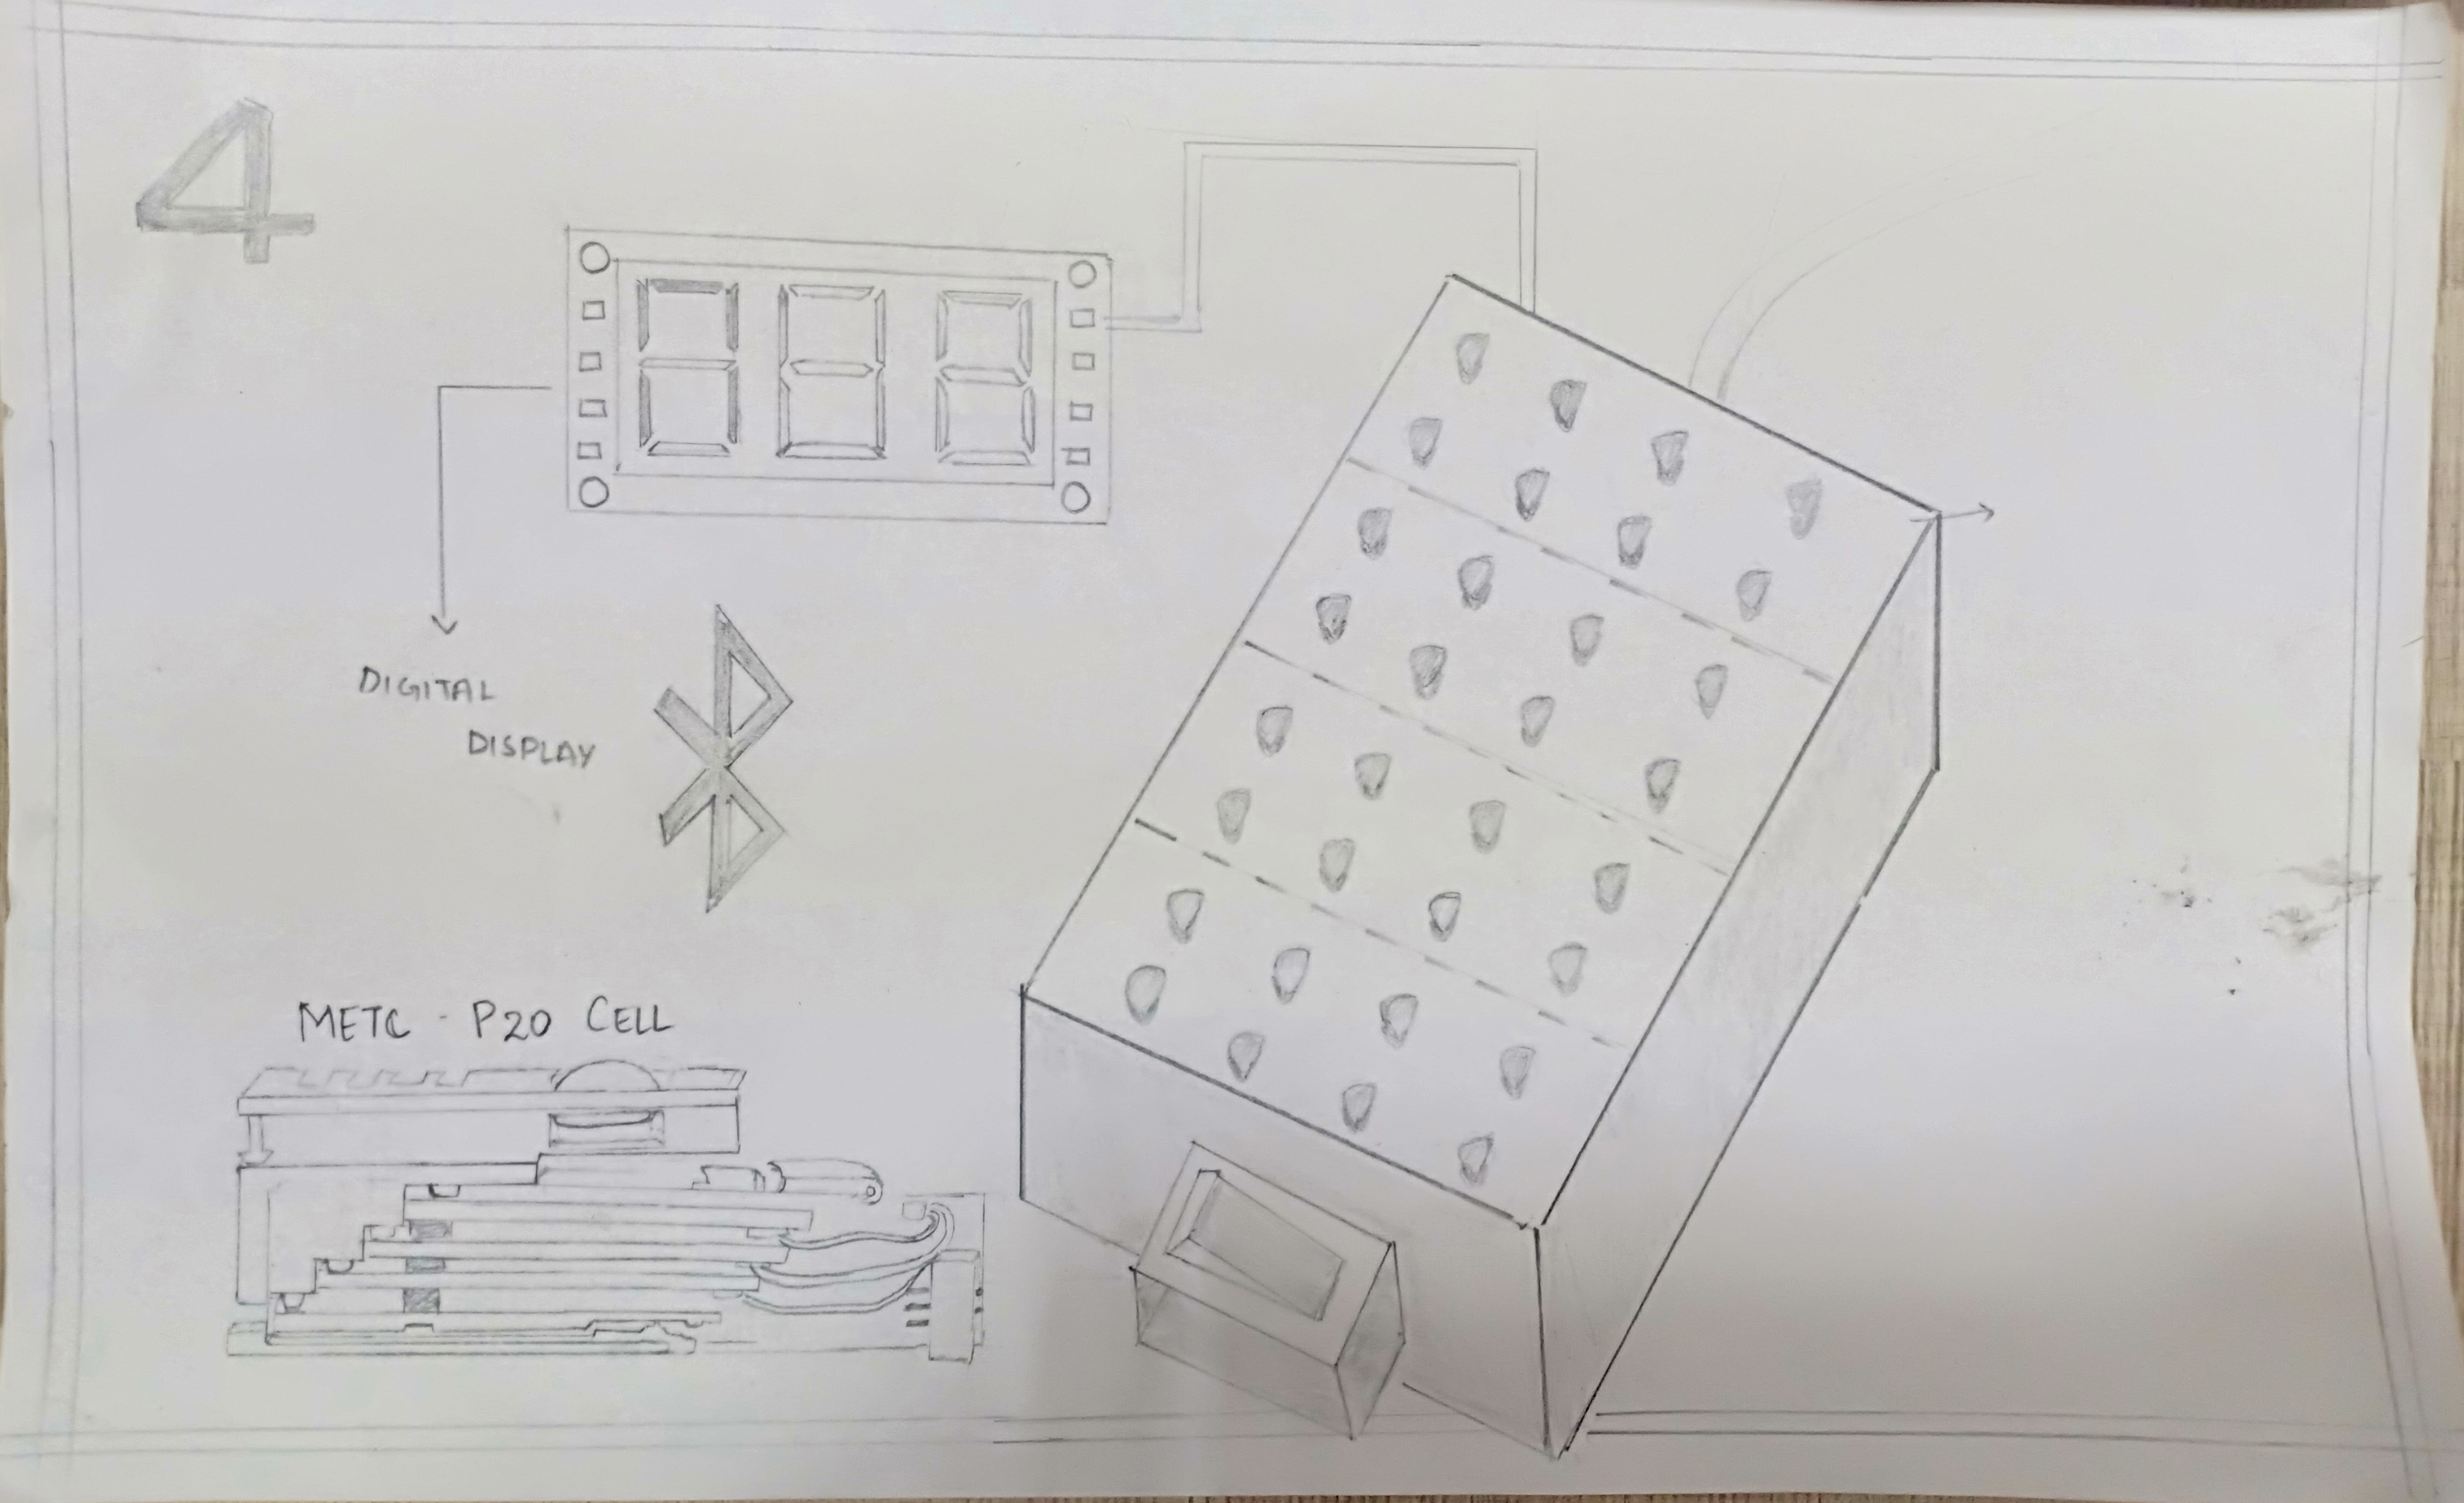 4
888
DIGITAL
DISPLAY
METC - P20 CELL